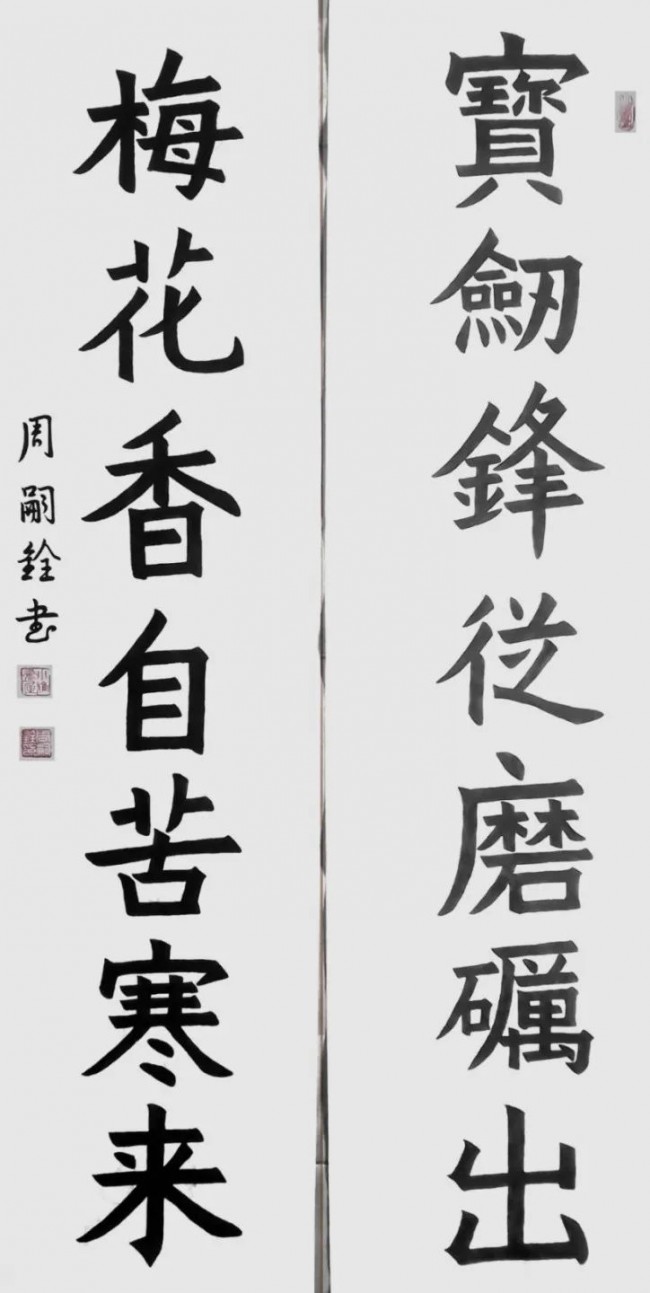 寶劒鋒従磨礪出
梅花香自苦寒来
周嗣銓书